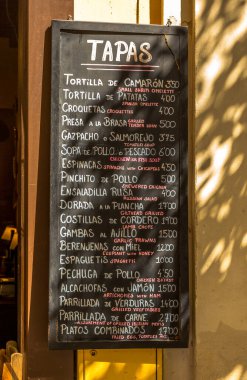 TAPAS
TORTILLA DE CAMARÓN 3'50
SMALL SHRIMP OMELETTE
TORTILLA DE PATATAS 4'00
SPANISH OMELETTE
CROQUETAS 4'00
CROQUETTES
PRESA A LA BRASA 5'00
GAZPACHO O SALMOREJO 3'75
SOPA DE POLLO O PESCADO 6'00
CHICKEN OR FISH SOUP
ESPINACAS
SPINACHS WITH CHICKPEAS
PINCHITO DE POLLO 5'00
SKEWERED CHICKEN
ENSALADILLA RUSA 4'00
RUSSIAN SALAD
DORADA A LA PLANCHA 17'00
COSTILLAS DE CORDERO 19'00
LAMB CHOPS
GAMBAS AL AJILLO 15'00
GARLIC PRAWNS
BERENJENAS CON MIEL 12'00
EGGPLANT WITH HONEY
ESPAGUETIS
SPAGHETTI
PECHUGA DE POLLO
CHICKEN BREAST
ALCACHOFAS CON JAMÓN 15'00
ARTICHOKES WITH HAM
PARRILLADA DE VERDURAS 14'00
GRILLED VEGETABLES
PARRILLADA DE CARNE
PLATOS COMBINADOS